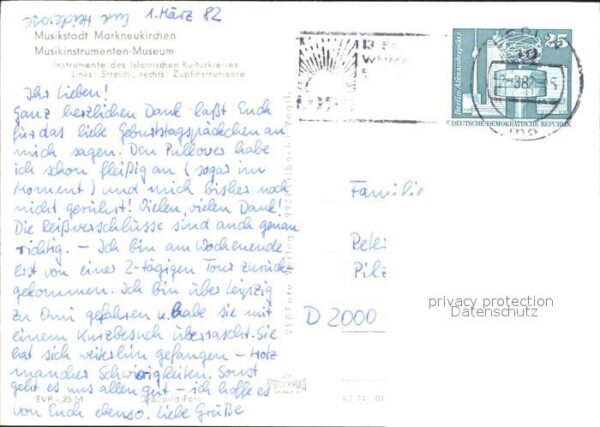 1. März 82
Musikstadt Markneukirchen
Musikinstrumenten-Museum
Instrumente des Islamischen Kulturkreises
Links: Streich-, rechts: Zupfinstrumente
Ihr Lieben!
Ganz herzlichen Dank laßt Euch
für das liebe Geburtstagspäckchen an
mich sagen. Den Pullover habe
ich schon fleißig an (sogar im
Moment) und mich bisher noch
nicht gerührt! Vielen, vielen Dank!
Die Reißverschlüsse sind auch genau
richtig. – Ich bin am Wochenende
erst von einer 2-tägigen Tour zurück
gekommen. Ich bin über Leipzig
zu Omi gefahren u. habe sie mit
einem Kurzbesuch überrascht. Sie
hat sich weiterhin gefangen – trotz
mancher Schwierigkeiten. Sonst
geht es uns allen gut – ich hoffe es
von Euch ebenso. Liebe Grüße
EVP -.25 M
VEB Foto-Verlag
Berlin, Alexanderplatz
25
DEUTSCHE DEMOKRATISCHE REPUBLIK
Familie
Peter
Pilz
D 2000
privacy protection
Datenschutz